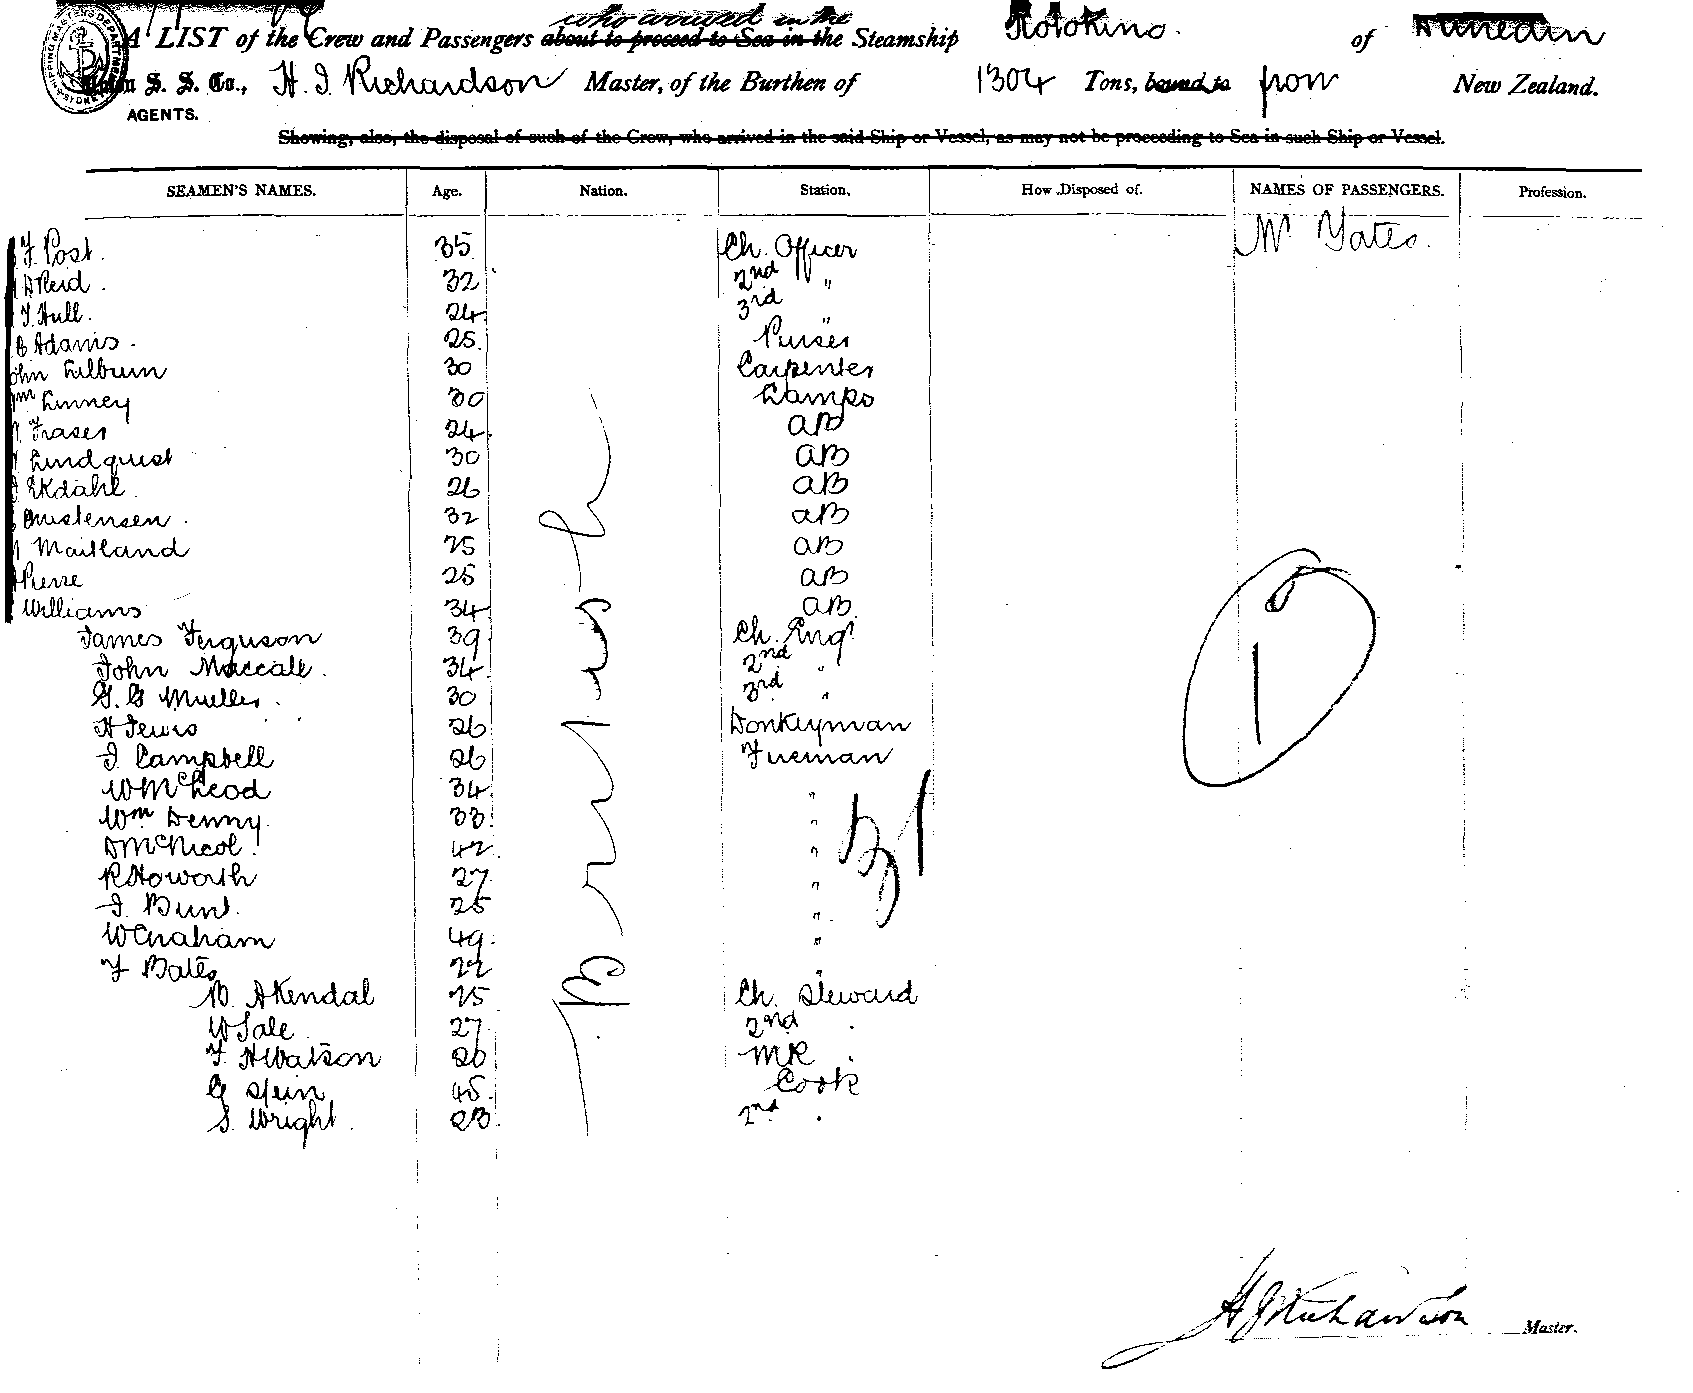 who arrived in the
A LIST of the Crew and Passengers about to proceed to Sea in the Steamship Rotokino. of Dunedin
Union S. S. Co., H. J. Richardson Master, of the Burthen of 1304 Tons, bound to from New Zealand.
AGENTS.
Showing, also, the disposal of such of the Crew, who arrived in the said Ship or Vessel, as may not be proceeding to Sea in such Ship or Vessel.
SEAMEN'S NAMES. Age. Nation. Station. How Disposed of. NAMES OF PASSENGERS. Profession.
F Post. 35 Ch. Officer Mr Yates.
A Reid. 32 2nd "
T Hull. 24 3rd "
C Adams. 25. Purser
John Lilburn 30 Carpenter
Wm Linney 30 Lamps
Fraser 24 AB
Lindquist 30 AB
Ekdahl. 26 AB
Christensen. 32 AB
Maitland 25 AB
Pierre 25 AB
Williams 34 AB
James Ferguson 39 Ch. Engr
John Maccale. 34 2nd "
G. G Mueller. 30 3rd "
H Lewis 26 Donkeyman
J Campbell 26 Fireman
W McLeod 34 "
Wm Denny. 33 "
D McNicol. 42 "
R Howorth 27 "
J. Bunt. 25 "
W Graham 49 "
F Bates 22 "
W. A Kendal 25 Ch. Steward
W Sale 27 2nd .
F H Watson 26 MR .
G Stein 45 Cook
S. Wright. 23 2nd .
British
31
1
H J Richardson Master.